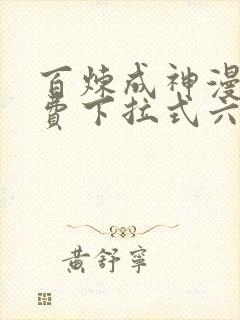 百炼成神漫
費下拉式六
黃舒寧